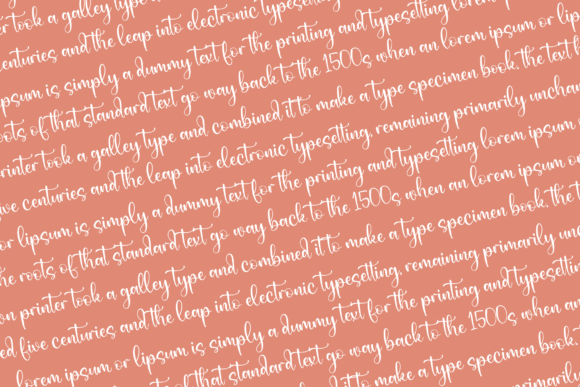 took a galley type
centuries and the leap into electronic typesetting
ipsum is simply a dummy text for the printing and typesetting lorem
roots of that standard text go way back to the 1500s when an lorem ipsum or lip
printer took a galley type and combined it to make a type specimen book. the text
five centuries and the leap into electronic typesetting. remaining primarily unchan
or lipsum is simply a dummy text for the printing and typesetting lorem ipsum
the roots of that standard text go way back to the 1500s when an lorem ipsum
on printer took a galley type and combined it to make a type specimen book. the text
ed five centuries and the leap into electronic typesetting. remaining primarily unch
lorem ipsum or lipsum is simply a dummy text for the printing and typesettin
the roots of that standard text go way back to the 1500s when an
it to make a type specimen book.